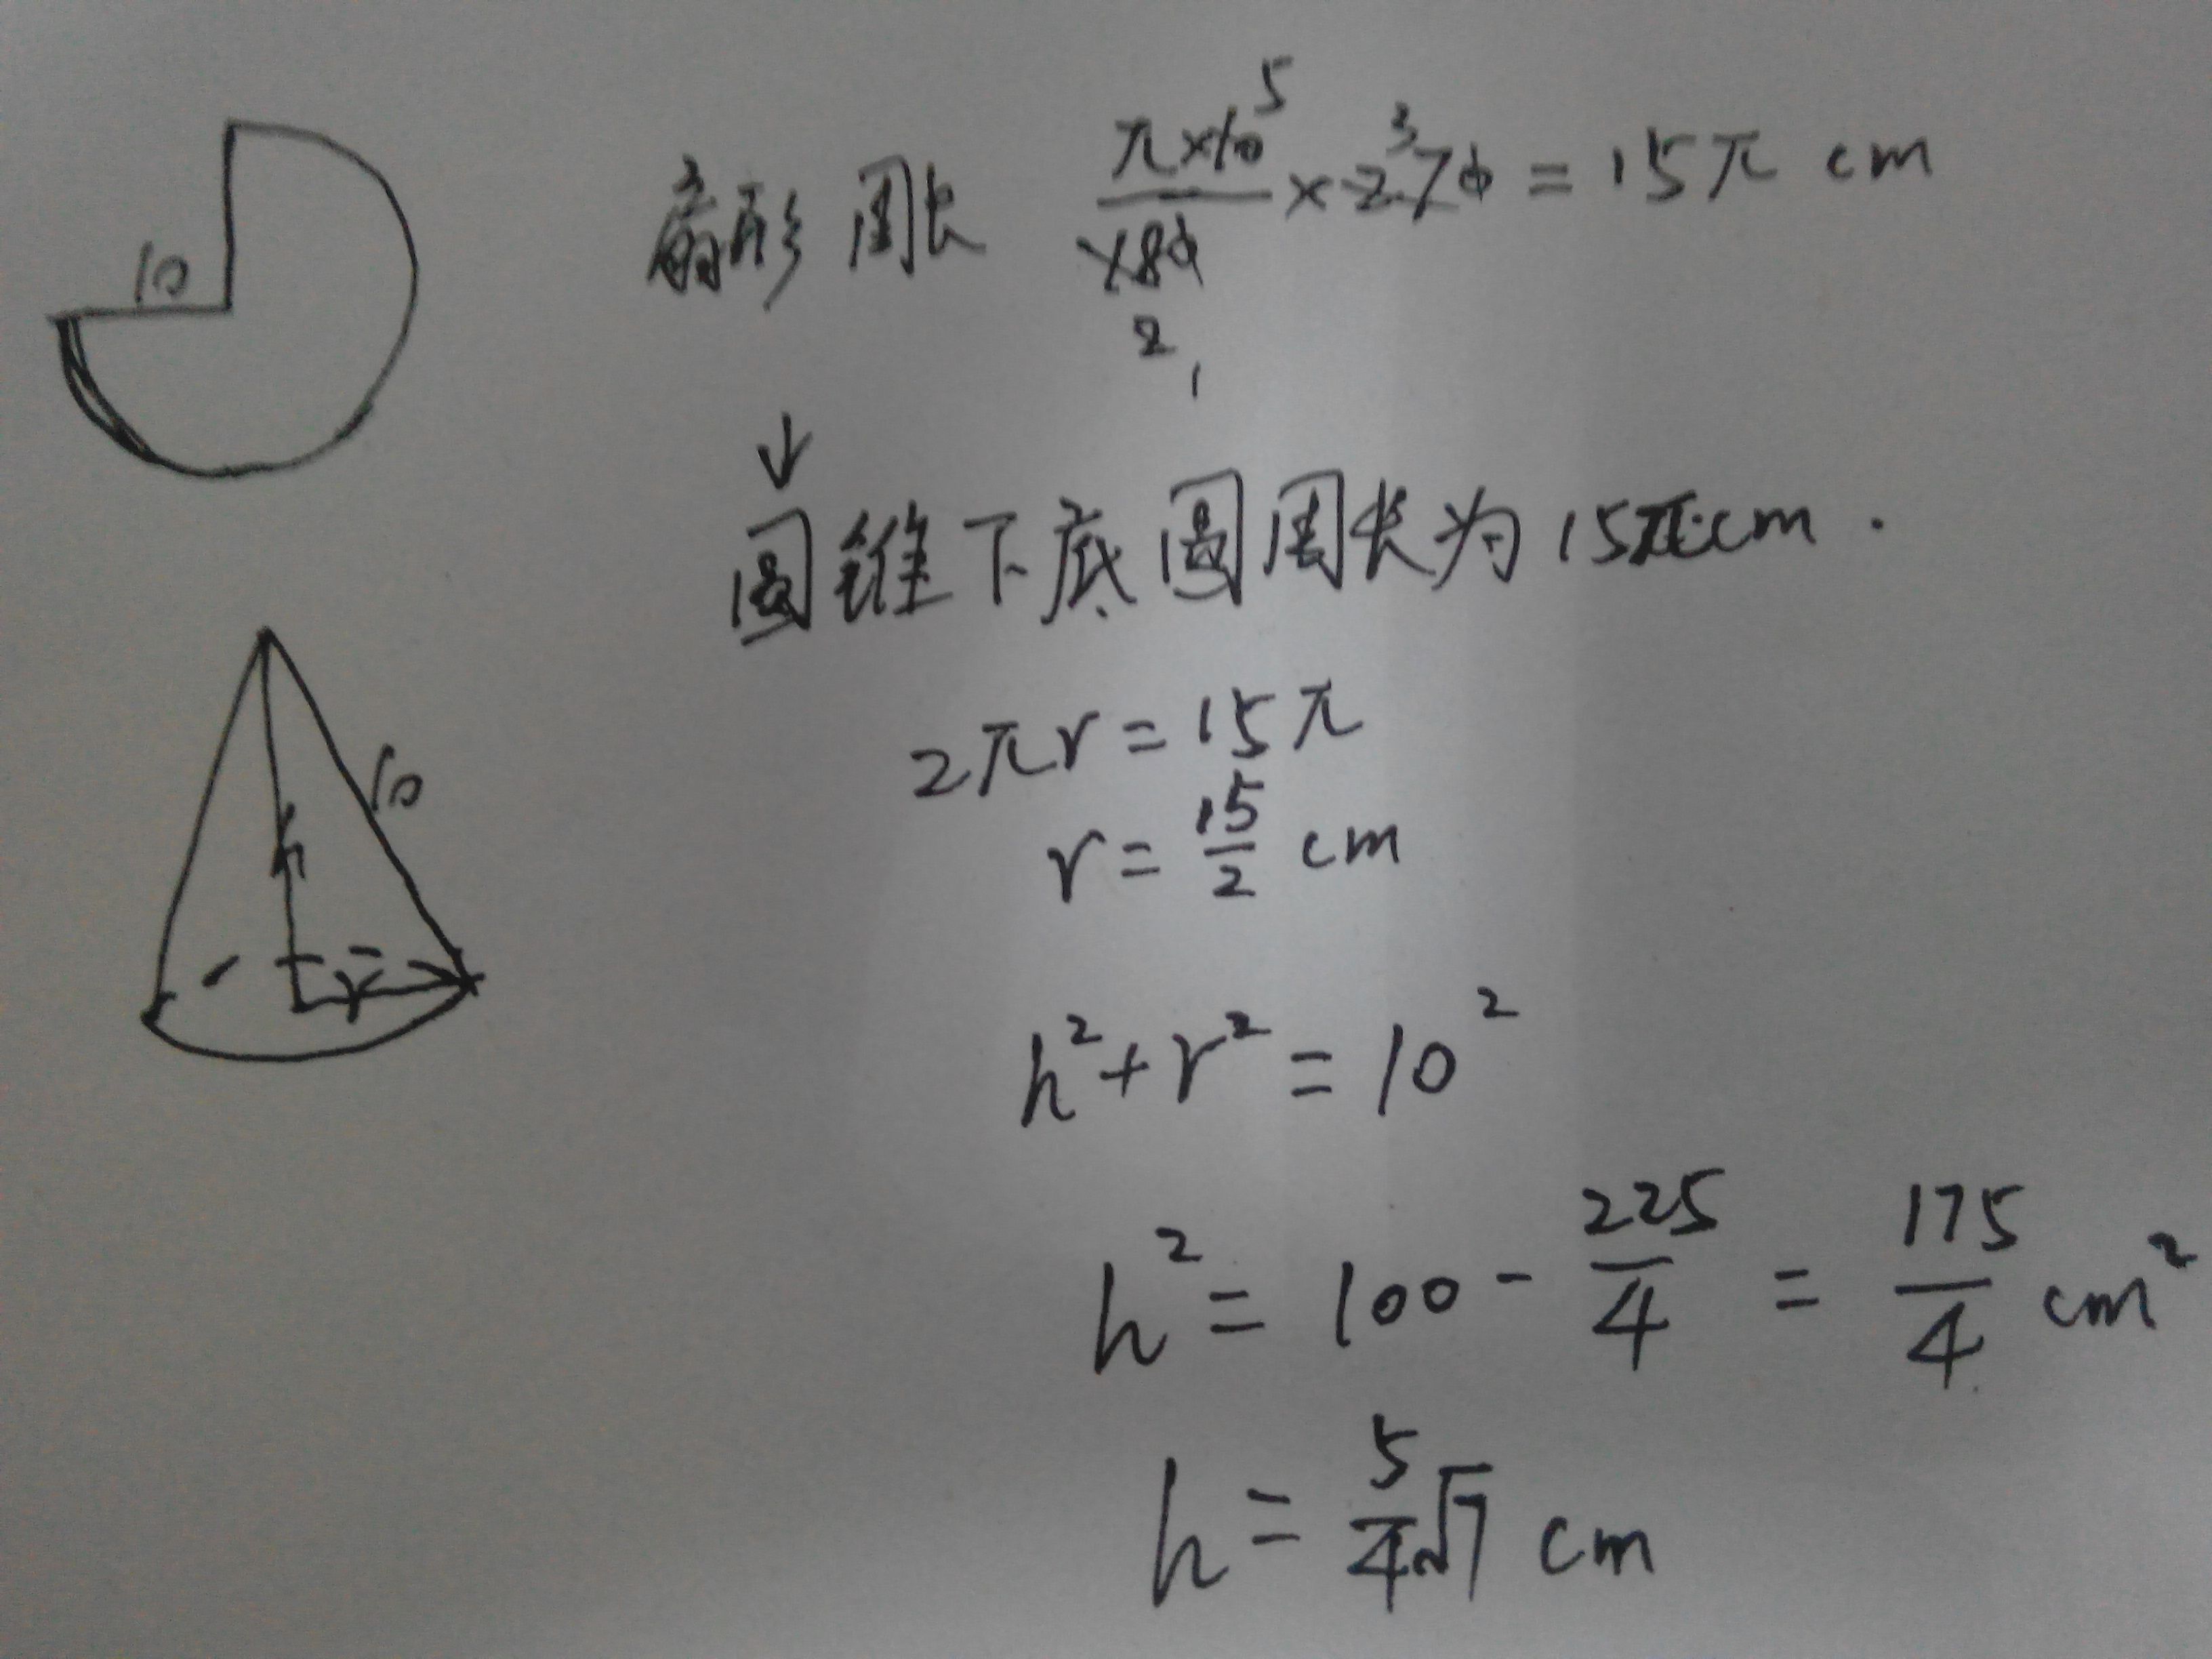 10
扇形周长 π×10/180 × 270 = 15π cm
5
3
2
1
↓
圆锥下底圆周长为15πcm.
10
h
r
2πr = 15π
r = 15/2 cm
h² + r² = 10²
h² = 100 - 225/4 = 175/4 cm²
h = 5/4 √7 cm